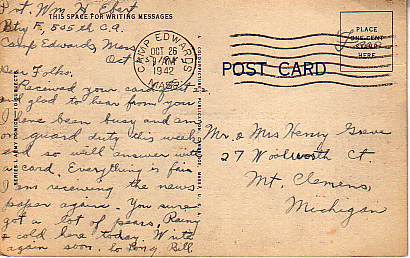 Pvt. Wm. H. Ebert
THIS SPACE FOR WRITING MESSAGES
Btry F, 505th C.A.
Camp Edwards, Mass.
Oct
Dear Folks.
Received your card
and glad to hear from you
I have been busy and am
on guard duty this week
and so will answer with
a card. Everything is fair
I am receiving the news
paper again. You sure
got a lot of pears. Rainy
& cold here today. Write
again soon. So long. Bill.
CAMP EDWARDS
OCT 26
1942
MASS.
POST CARD
PLACE
ONE CENT
HERE
Mr. & Mrs Henry
27 Woolworth Ct.
Mt. Clemens,
Michigan